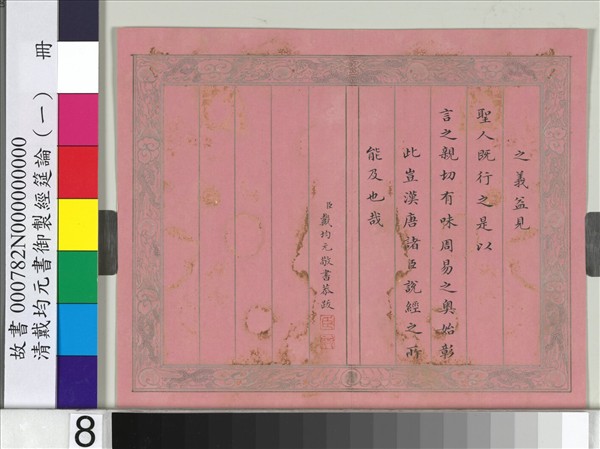 之義益見
聖人既行之是以
言之親切有味周易之奧始彰
此豈漢唐諸臣說經之所
能及也哉
臣戴均元敬書恭跋
故書 000782N000000000
清戴均元書御製經筵論(一) 冊
8